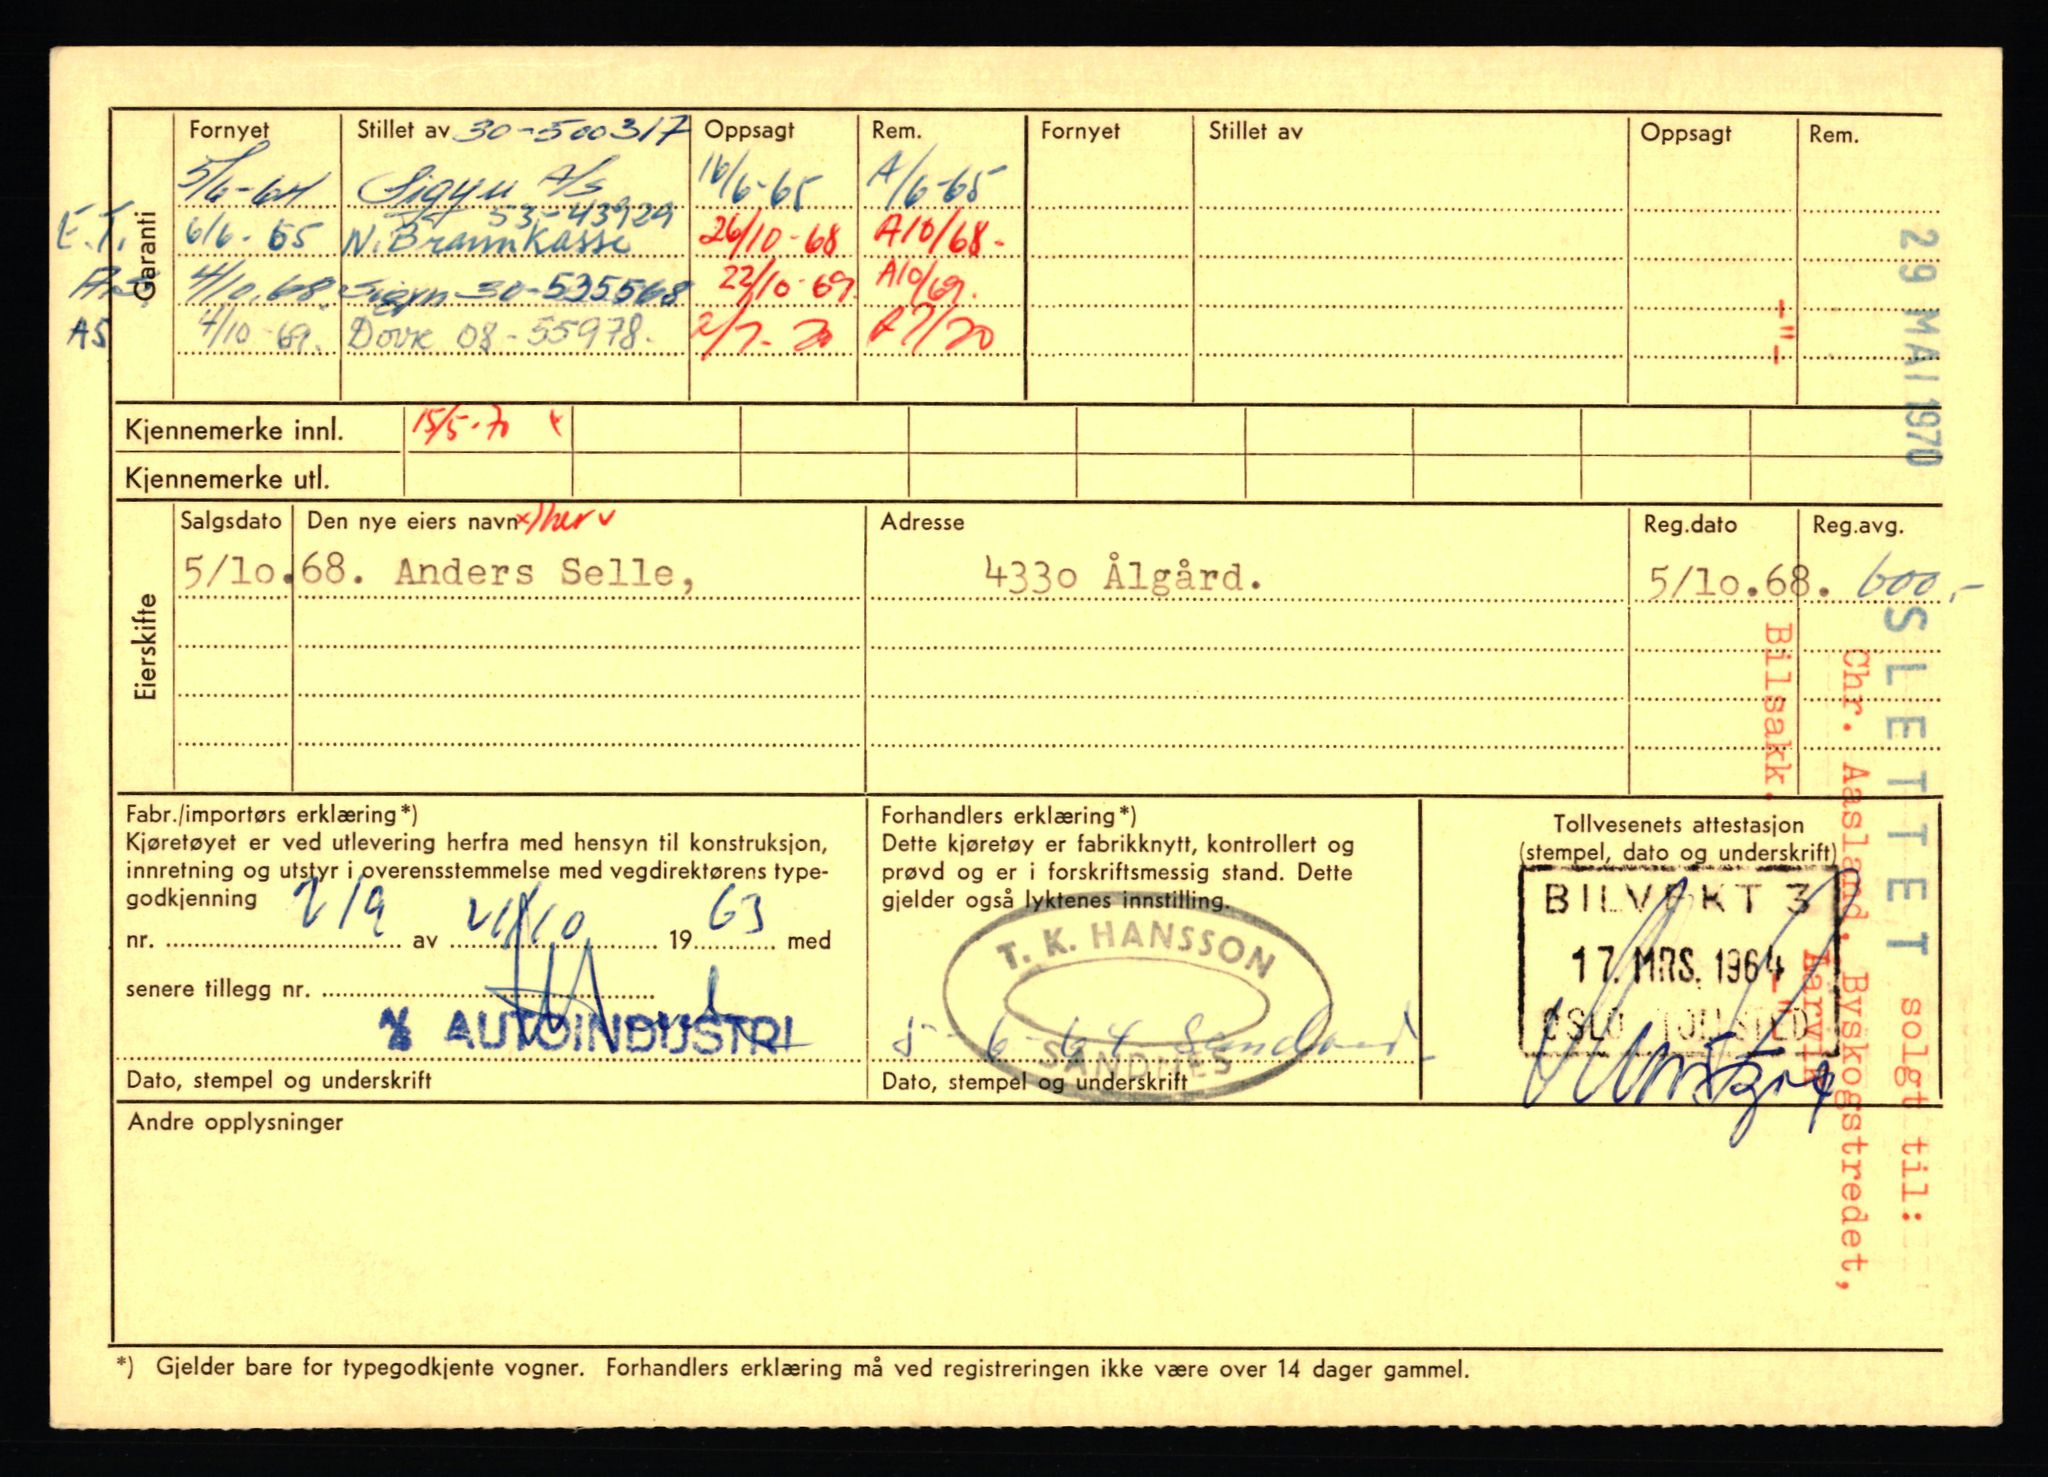 Fornyet Stillet av 30-500317 Oppsagt Rem. Fornyet Stillet av Oppsagt Rem.
Garanti
5/6-64 Sigyn A/S 16/6-65 A/6-65
53-43929
E.T. 6/6-65 N. Brannkasse 26/10-68 A10/68.
4/10.68. Sigyn 30-535568 22/10-69. A10/69.
AS 4/10-69. Dovre 08-55978. 2/7-70 A7/70
-"-
29 MAI 1970
Kjennemerke innl. 15/5-70 x
Kjennemerke utl.
Eierskifte
Salgsdato Den nye eiers navn Adresse Reg.dato Reg.avg.
5/10.68. Anders Selle, 4330 Ålgård. 5/10.68. 600,-
SLETTET solgt til:
Chr. Aasland, Byskogstredet,
Larvik
Bilsakk. -"-
Fabr./importørs erklæring*)
Kjøretøyet er ved utlevering herfra med hensyn til konstruksjon,
innretning og utstyr i overensstemmelse med vegdirektørens type-
godkjenning
nr. 219 av 21/10 1963 med
senere tillegg nr.
A/S AUTOINDUSTRI
Dato, stempel og underskrift
Forhandlers erklæring*)
Dette kjøretøy er fabrikknytt, kontrollert og
prøvd og er i forskriftsmessig stand. Dette
gjelder også lyktenes innstilling.
T. K. HANSSON
5-6-64
SANDNES
Dato, stempel og underskrift
Tollvesenets attestasjon
(stempel, dato og underskrift)
BILVEKT 3
17. MRS. 1964
OSLO TOLLSTED
Andre opplysninger
*) Gjelder bare for typegodkjente vogner. Forhandlers erklæring må ved registreringen ikke være over 14 dager gammel.